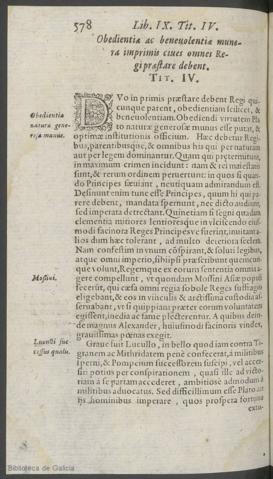 578 Lib. IX. Tit. IV.
Obedientia ac beneuolentia mune-
ra imprimis ciues omnes Re-
gi præstare debent.
TIT. IV.
DVo in primis præstare debent Regi qui-
cunque parent, obedientiam scilicet, &
Obedientia
natura gene-
rosa manus.
beneuolentiam. Obediendi virtutem Pla
to naturæ generosæ munus esse putat, &
optimæ institutionis officium. Hæc debetur Regi-
bus, parentibusque, & omnibus his qui per naturam
aut per legem dominantur. Quam qui prætermittunt,
in maximum crimen incidunt: nam & rei maiestatis
sunt, & rerum ordinem peruertunt: in quos si quan-
do Principes sæuiant, neutiquam admirandum est.
Desinunt enim esse Principes, quum hi qui pa-
rere debent, mandata spernunt, nec dicto audiunt,
sed imperata detrectant. Quinetiam si segni quadam
clementia mitiores lentioresque in vlciscendo eius-
modi facinora Reges Principesve fuerint, inuitan-
lios dum hæc tolerant, ad multo deteriora scelera.
Nam confestim in vnum conspirant, & soluti legibus,
atque omni imperio, sibi ipsi præscribunt quencun-
que volunt, Regemque ex eorum sententia omnia a-
Mossini.
gere compellunt, vt quondam Mossini Asiæ populi
fecerunt, qui cæsa omni regia sobole Reges suffragio
eligebant, & eos in vinculis & arctissima custodia as-
seruabant, vt si quippiam præter eorum voluntatem
egissent, inedia ac fame plecterentur. A quibus dein-
de magnus Alexander, huiusmodi facinoris vindex,
grauissimas pœnas exegit.
Luculli suc
cessus qualis.
Graue fuit Lucullo, in bello quod iam contra Ti-
granem ac Mithridatem penè confecerat, à militibus
sperni, & Pompeium successorem suscipi, vel acces-
siri potius per conspirationem, quasi ille ad victo-
riam à se partam accederet, ambitiosè admodum à
militibus aduocatus. Sed difficillimum esse Plato ait
iis hominibus imperare, quos prospera fortuna
extu-
Biblioteca de Galicia